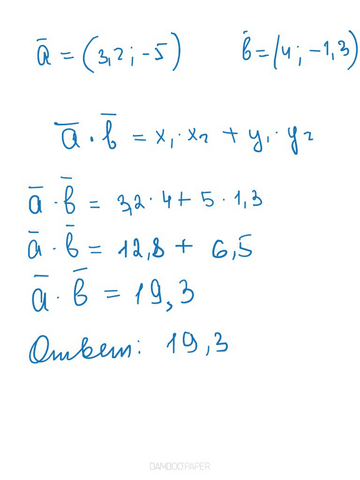 a̅ = (3,2 ; -5) b̅ = (4 ; -1,3)
a̅ · b̅ = x₁ · x₂ + y₁ · y₂
a̅ · b̅ = 3,2 · 4 + 5 · 1,3
a̅ · b̅ = 12,8 + 6,5
a̅ · b̅ = 19,3
Ответ: 19,3
BAMBOO PAPER